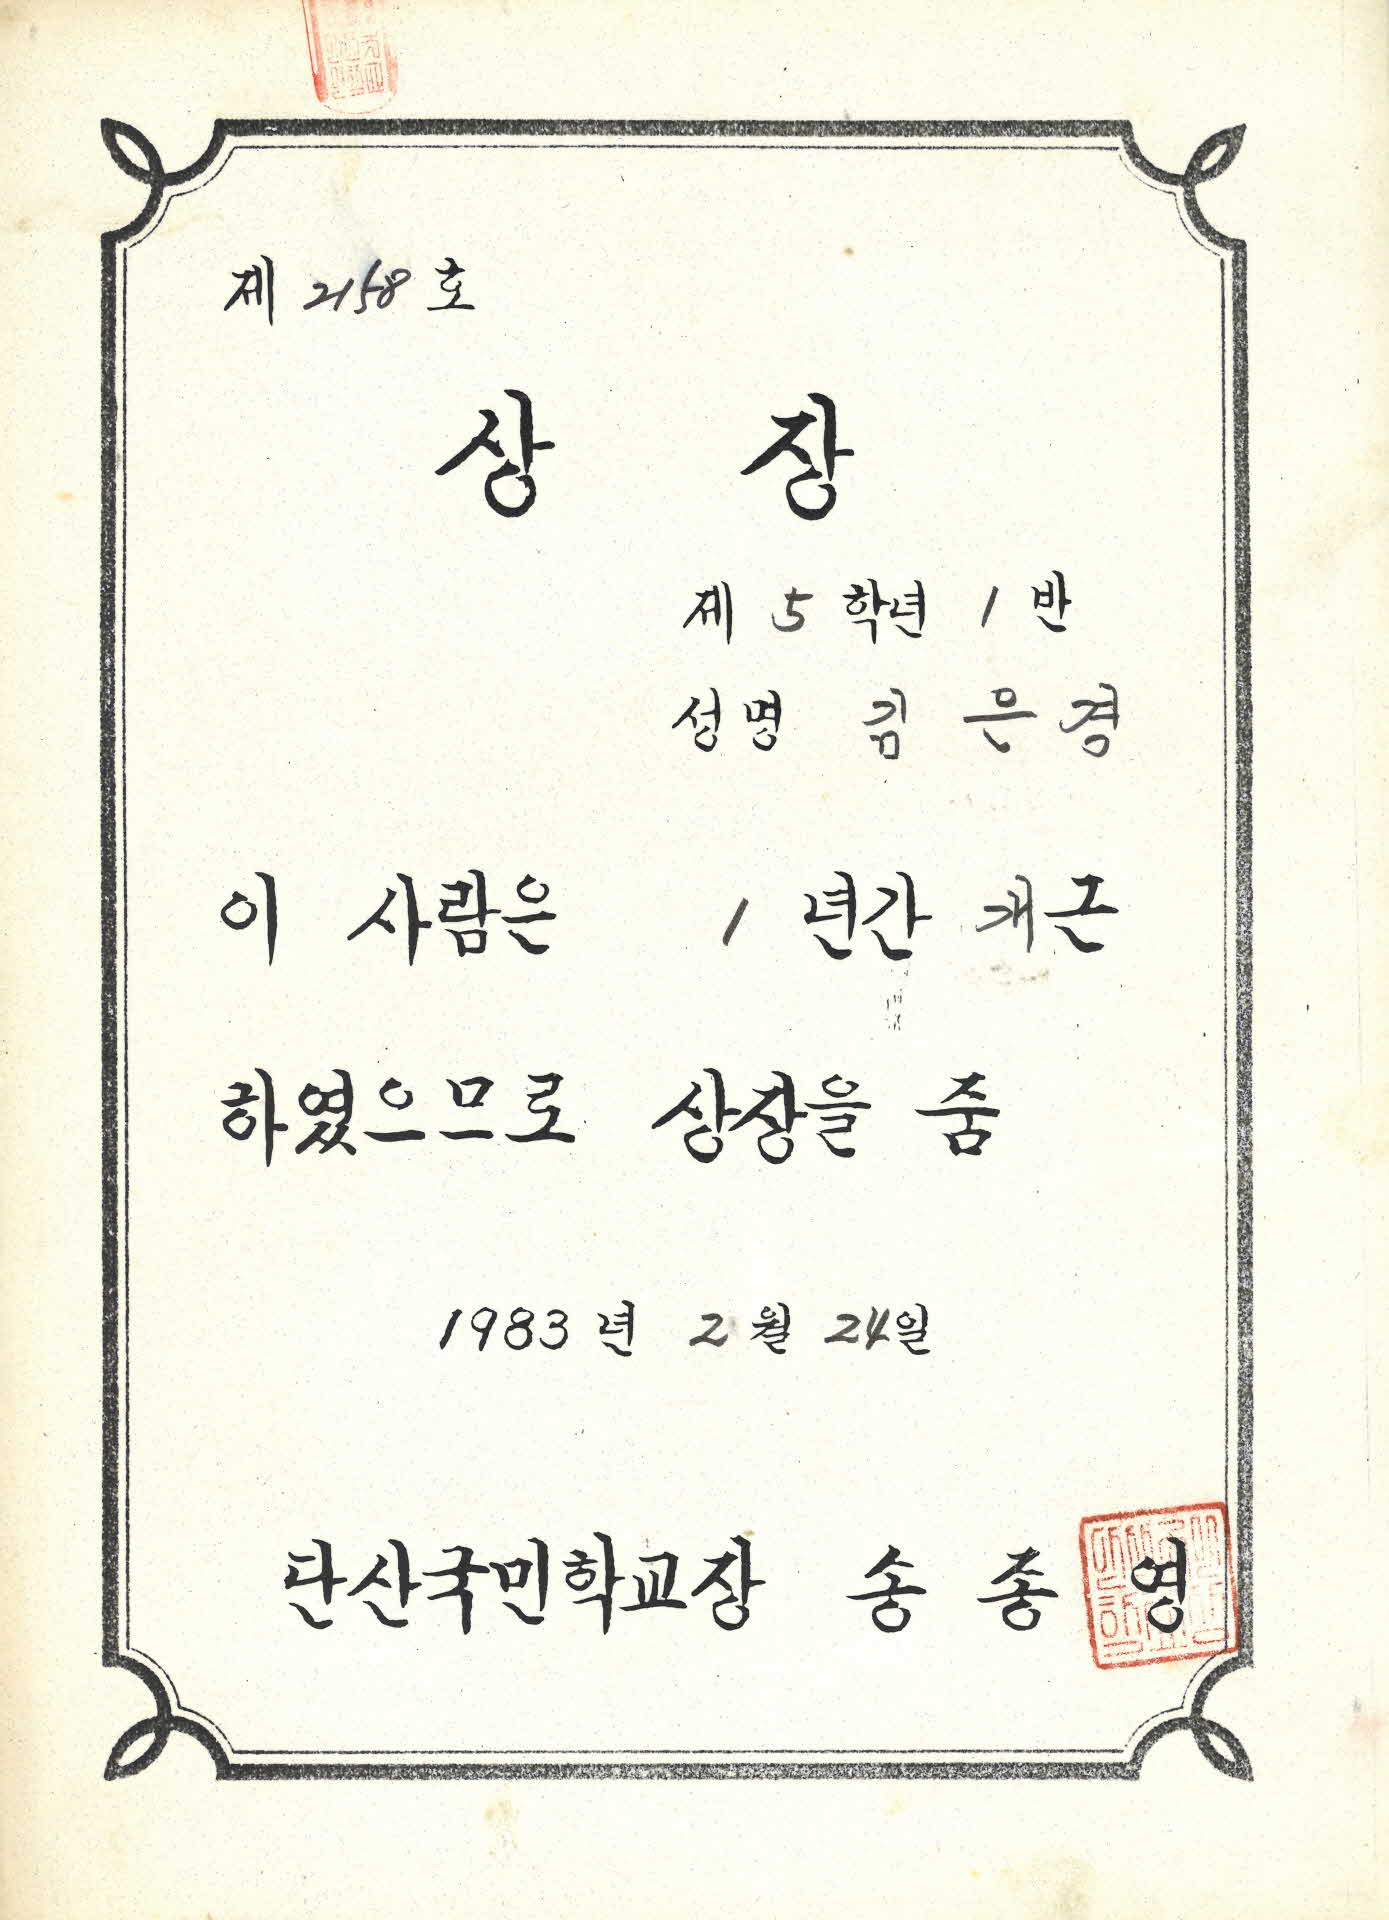 제 2158 호
상 장
제 5 학년 1 반
성명 김 은 경
이 사람은 1 년간 개근
하였으므로 상장을 줌
1983 년 2 월 24일
단산국민학교장 송 종 영